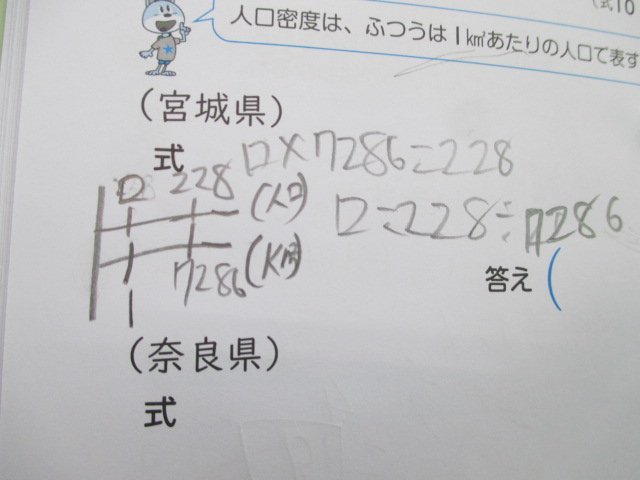 (式10
人口密度は、ふつうは1km²あたりの人口で表す
(宮城県)
式 □×7286=228
□ 228 (人口)
□=228÷7286
7286 (km²)
1
答え(
(奈良県)
式